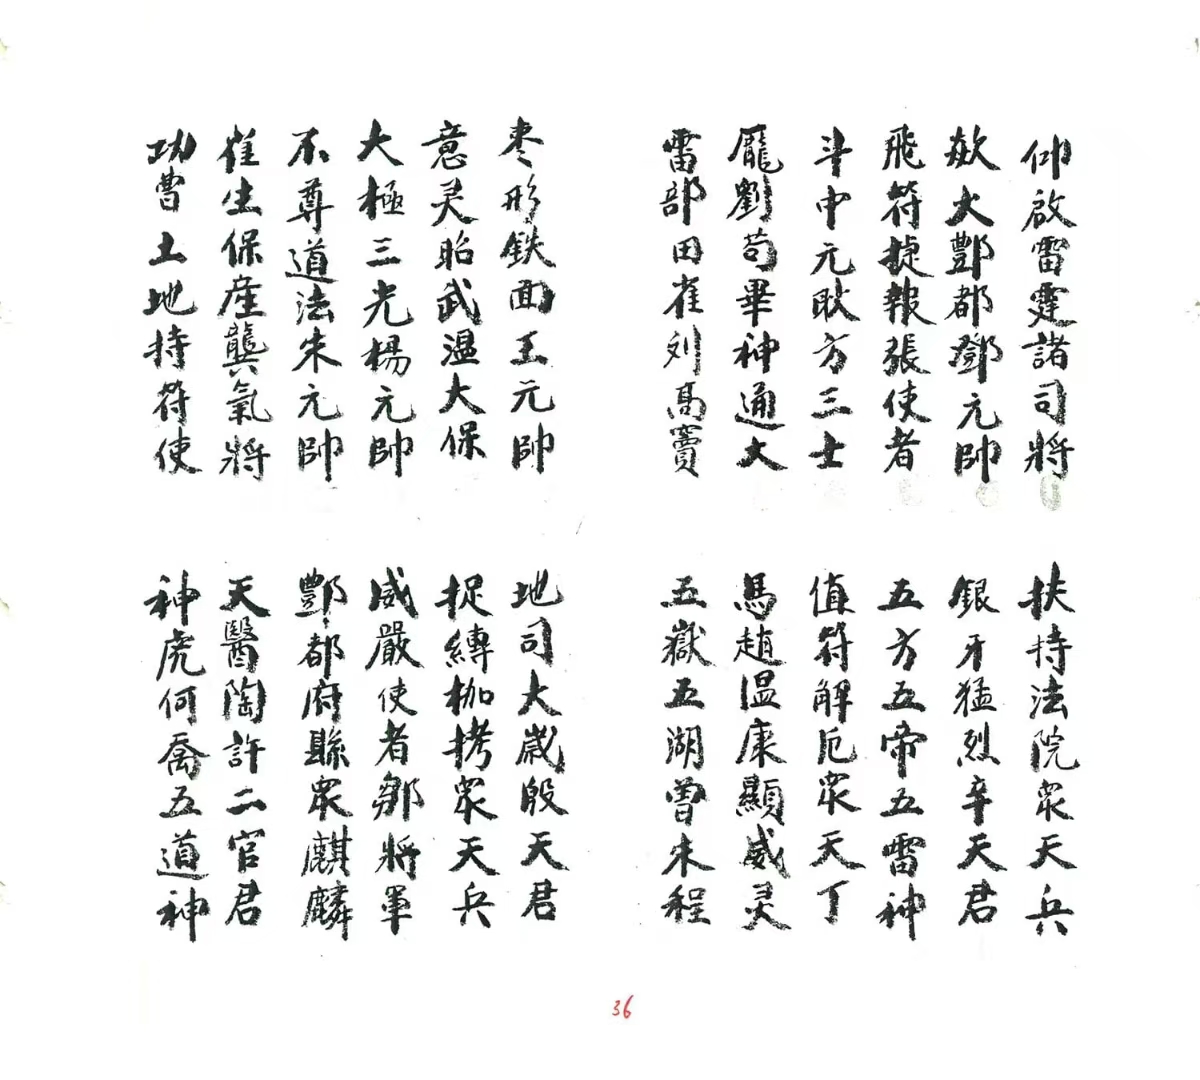 仰啟雷霆諸司將
扶持法院眾天兵
欻火酆都鄧元帥
銀牙猛烈辛天君
飛符捷報張使者
五方五帝五雷神
斗中元耿方三士
值符解厄眾天丁
龐劉苟畢神通大
馬趙温康顯威灵
雷部田崔列高竇
五嶽五湖曾朱程
枣形鉄面王元帥
地司大歲殷天君
意灵昭武温大保
捉縛枷拷眾天兵
大極三光楊元帥
威嚴使者鄒將軍
不尊道法朱元帥
酆都府縣眾麒麟
崔生保産龔氣將
天醫陶許二官君
功曹土地持符使
神虎何喬五道神
36